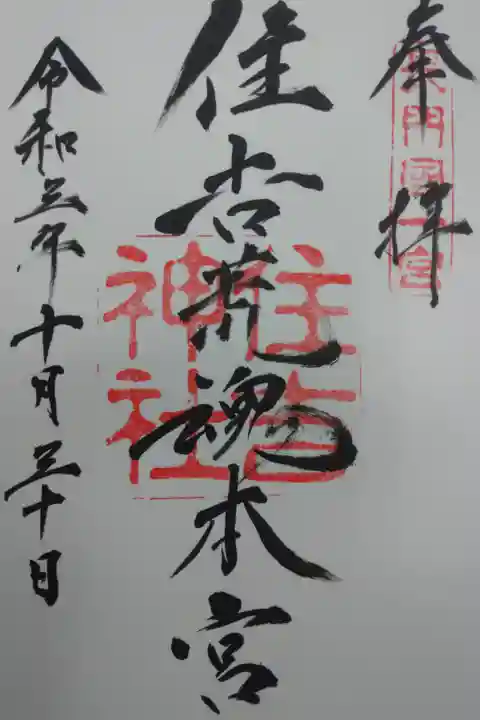 奉拝
長門國一宮
住吉荒魂本宮
住吉神社
令和三年十月三十日